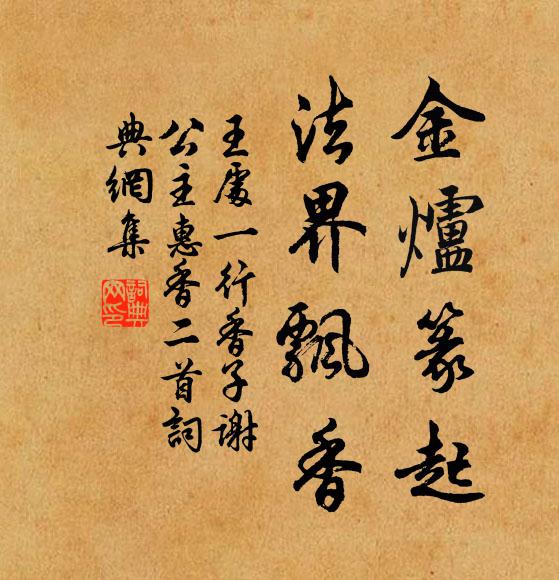 金爐篆起
法界飄香
王處一行香子谢
公主惠香二首詞
典網集
詞典網印